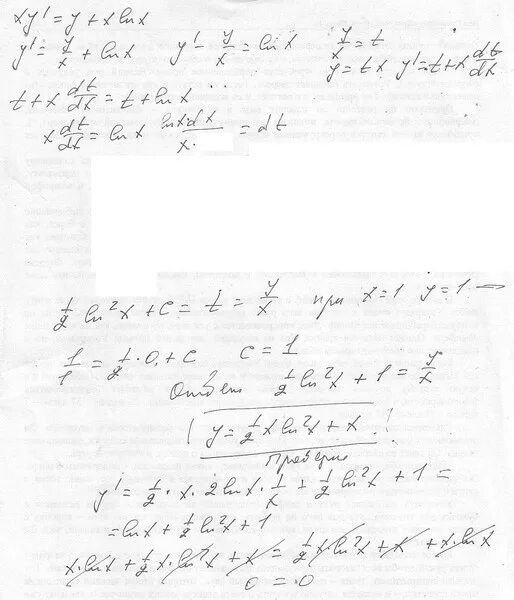 xy' = y + x ln x
y' = y/x + ln x   y' - y/x = ln x   y/x = t
y = tx   y' = t + x dt/dx
t + x dt/dx = t + ln x
x dt/dx = ln x   ln x dx / x = dt
1/2 ln²x + c = t = y/x   при x=1 y=1
1/1 = 1/2 · 0 + c   c = 1
Ответ 1/2 ln²x + 1 = y/x
y = 1/2 x ln²x + x
Проверка
y' = 1/2 · x · 2 ln x · 1/x + 1/2 ln²x + 1 =
= ln x + 1/2 ln²x + 1
x · ln x + 1/2 x · ln²x + x = 1/2 x ln²x + x + x · ln x
0 = 0